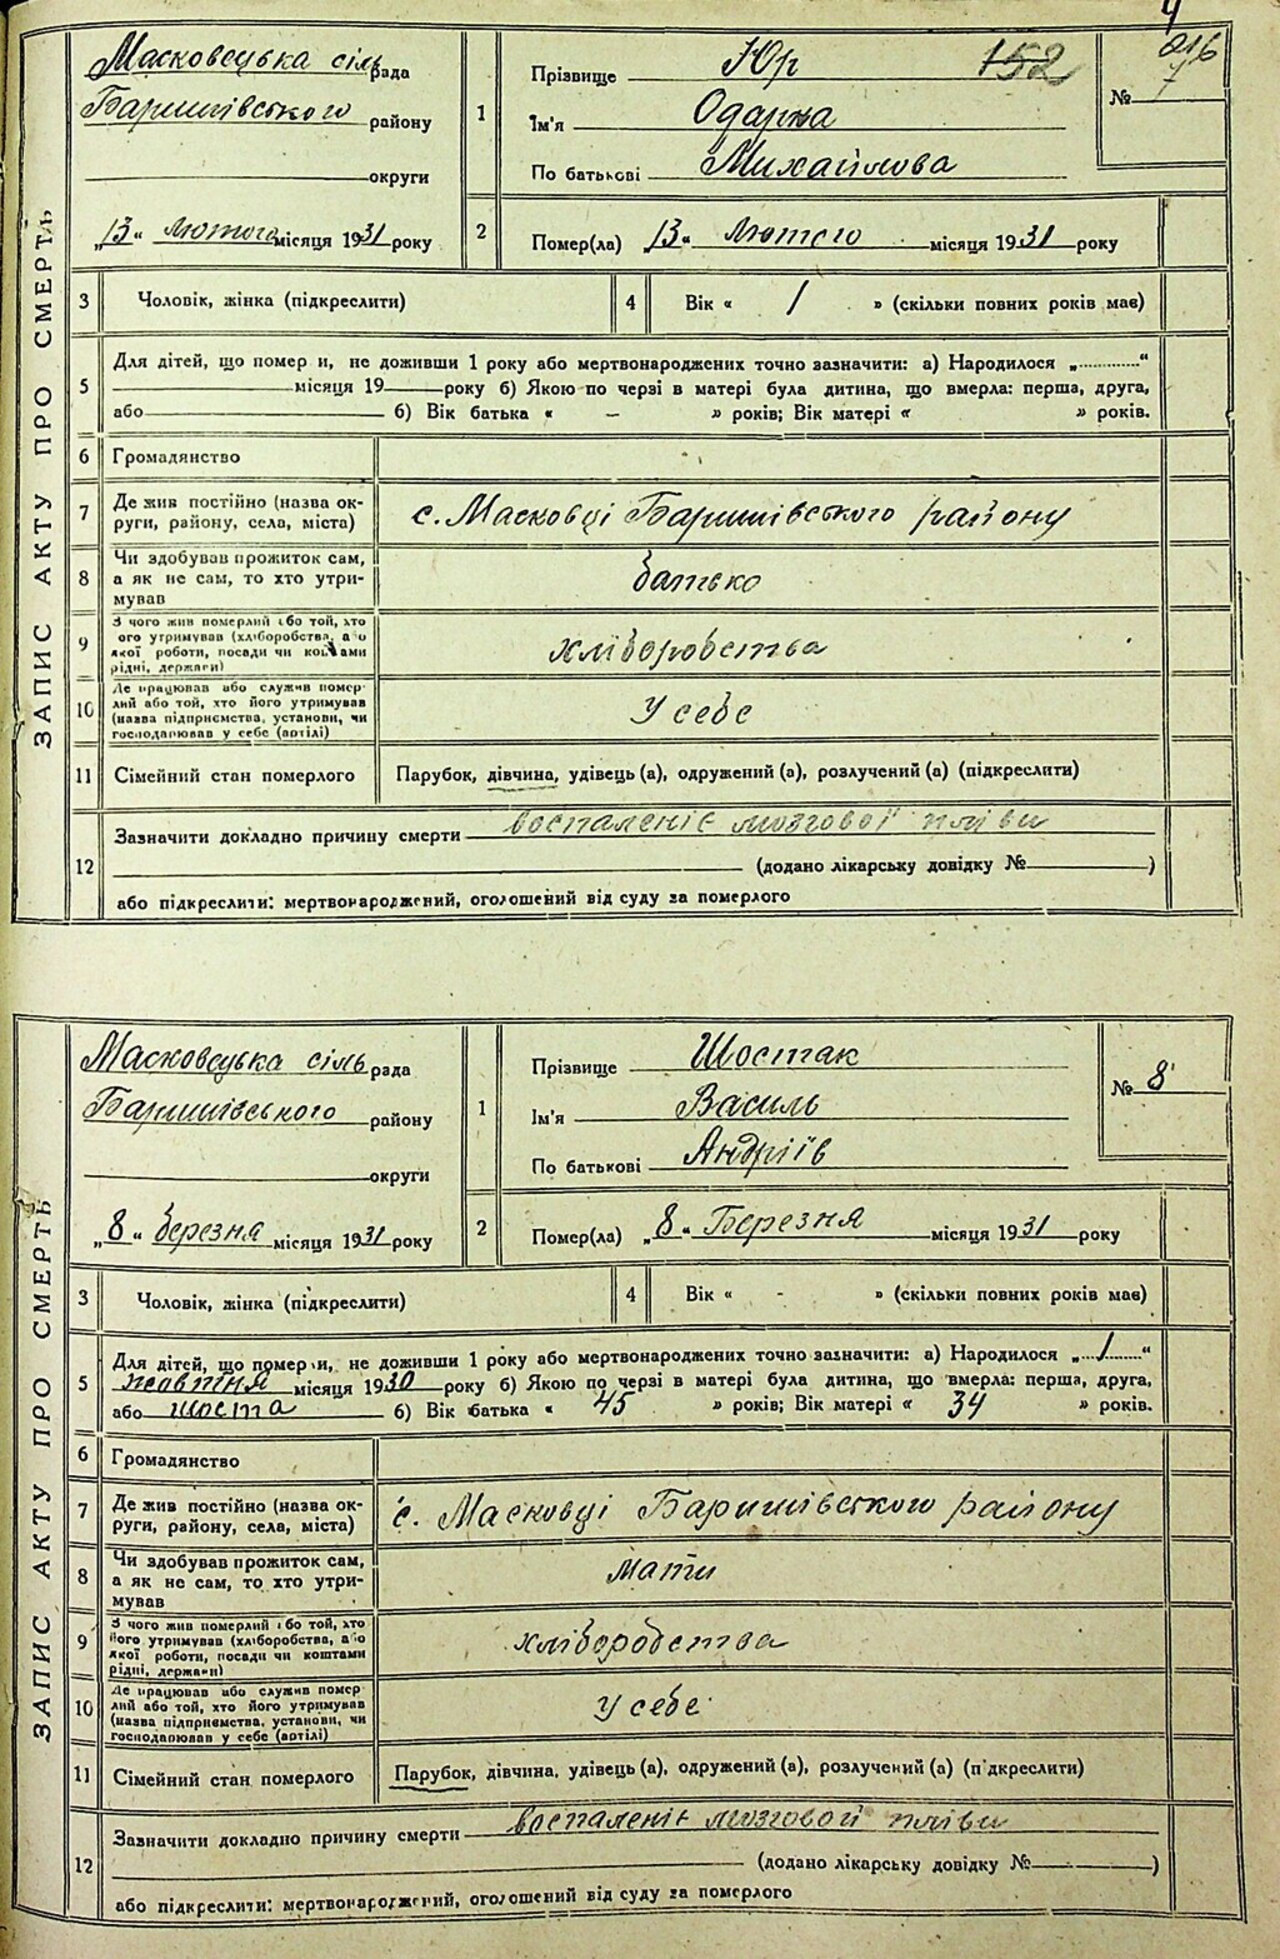 4
ЗАПИС АКТУ ПРО СМЕРТЬ
Масковецька сільрада
Баришівського району
округи
„13“ лютого місяця 1931 року
1
Прізвище Юр 152
Ім'я Одарка
По батькові Михайлова
№ 7
016
2
Помер(ла) „13“ лютого місяця 1931 року
3
Чоловік, жінка (підкреслити)
4
Вік « 1 » (скільки повних років має)
5
Для дітей, що померли, не доживши 1 року або мертвонароджених точно зазначити: а) Народилося „ “
місяця 19 року б) Якою по черзі в матері була дитина, що вмерла: перша, друга,
або б) Вік батька « – » років; Вік матері « » років.
6
Громадянство
7
Де жив постійно (назва ок-
руги, району, села, міста)
с. Масковці Баришівського району
8
Чи здобував прожиток сам,
а як не сам, то хто утри-
мував
батько
9
З чого жив померлий або той, хто
його утримував (хліборобства, або
якої роботи, посади чи коштами
рідні, держави)
хліборобства
10
Де працював або служив помер-
лий або той, хто його утримував
(назва підприємства, установи, чи
господарював у себе (артілі)
У себе
11
Сімейний стан померлого
Парубок, дівчина, удівець (а), одружений (а), розлучений (а) (підкреслити)
12
Зазначити докладно причину смерти воспаленіє мозгової пліви
(додано лікарську довідку № )
або підкреслити: мертвонароджений, оголошений від суду за померлого
ЗАПИС АКТУ ПРО СМЕРТЬ
Масковецька сільрада
Баришівського району
округи
„8“ березня місяця 1931 року
1
Прізвище Шостак
Ім'я Василь
По батькові Андріїв
№ 8
2
Помер(ла) „8“ Березня місяця 1931 року
3
Чоловік, жінка (підкреслити)
4
Вік « - » (скільки повних років має)
5
Для дітей, що померли, не доживши 1 року або мертвонароджених точно зазначити: а) Народилося „1“
жовтня місяця 1930 року б) Якою по черзі в матері була дитина, що вмерла: перша, друга,
або шоста б) Вік батька « 45 » років; Вік матері « 34 » років.
6
Громадянство
7
Де жив постійно (назва ок-
руги, району, села, міста)
с. Масковці Баришівського району
8
Чи здобував прожиток сам,
а як не сам, то хто утри-
мував
мати
9
З чого жив померлий або той, хто
його утримував (хліборобства, або
якої роботи, посади чи коштами
рідні, держави)
хліборобства
10
Де працював або служив помер-
лий або той, хто його утримував
(назва підприємства, установи, чи
господарював у себе (артілі)
У себе
11
Сімейний стан померлого
Парубок, дівчина, удівець (а), одружений (а), розлучений (а) (підкреслити)
12
Зазначити докладно причину смерти воспаленіє мозговой пліви
(додано лікарську довідку № )
або підкреслити: мертвонароджений, оголошений від суду за померлого